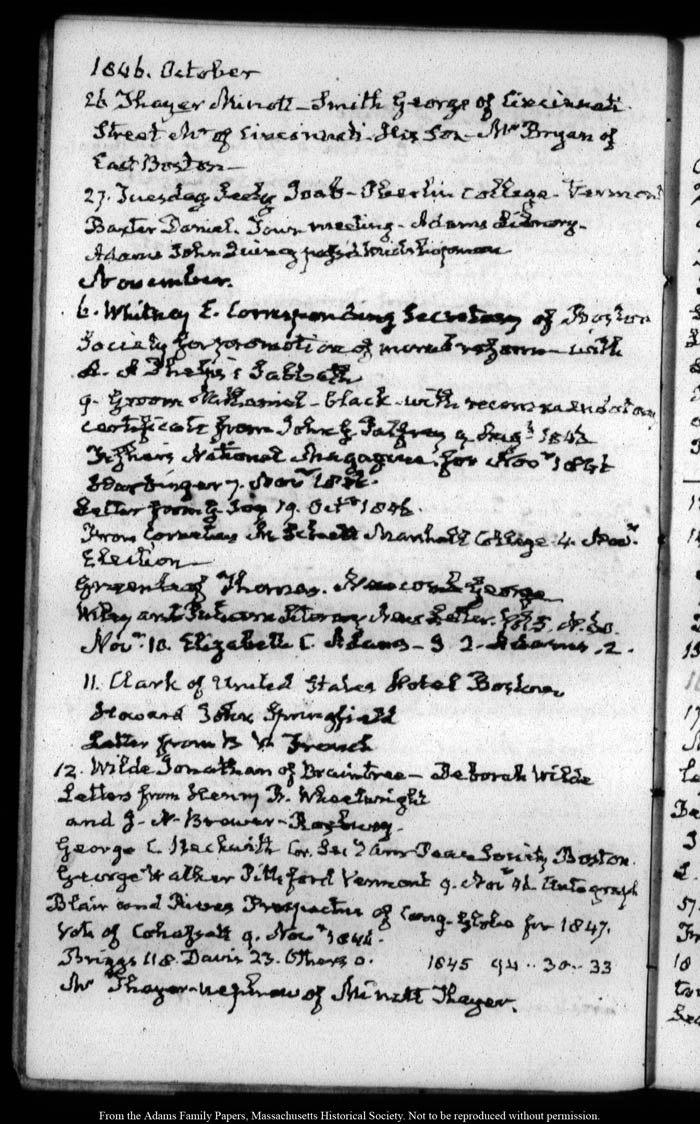 1846. October
26 Thayer Minott - Smith George of Cincinnati
Street Mr of Cincinnati - His Son - Mr Bryan of
East Boston -
27. Tuesday Joab - Oberlin College - Vermont
Baxter Daniel. Town meeting - Adams Library -
Adams John Quincy
November.
6. Whitney E. Corresponding Secretary of Boston
Society for promotion of moral reform - with
A. A Phelps's Sabbath
9. Groom Nathaniel - black - with recommendatory
certificate from John G Palfrey 9 1843
National Magazine for Novr 1846
Harbinger 7. Novr 1846.
Letter from G Joy 19. Octr 1846.
From Cornelius M Marshall College 4. Novr.
Election
of Thomas. George
Wiley and Putnam Literary News Letter. Vol 5. N. 60.
Novr. 10. Elizabeth C. Adams - I. 2 - Adams. 2.
11. Clark of United States Hotel Boston
Howard John Springfield
Letter from B V French
12. Wilde Jonathan of Braintree - Deborah Wilde
Letters from Henry B. Wheelwright
and J. N. Brewer - Roxbury.
George C. Beckwith Cor. Sec. Amn Peace Society Boston.
George Walker Pittsford Vermont 9. Novr 46 Autograph
Blair and Rives Prospectus of Cong. Globe for 1847.
Vote of Cohasset 9. Novr 1846.
Briggs 118. Davis 23. Others 0. 1845 94 .. 30 .. 33
Mr Thayer - nephew of Minott Thayer.
From the Adams Family Papers, Massachusetts Historical Society. Not to be reproduced without permission.